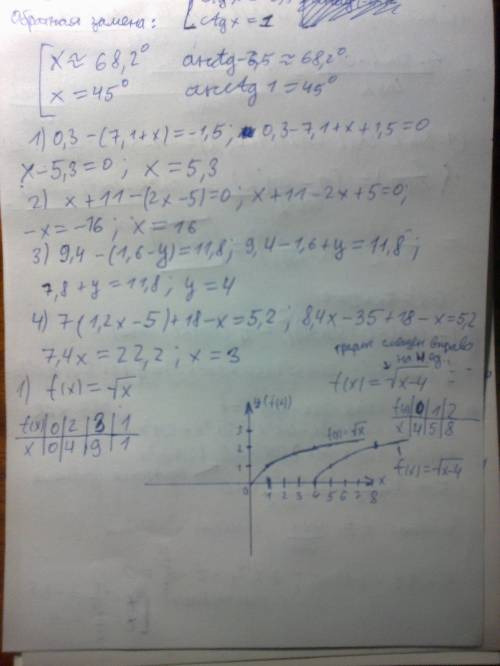 Обратная замена:
ctg x = 1
[ x ≈ 68,2° arctg 2,5 ≈ 68,2°
x = 45° arcctg 1 = 45°
1) 0,3-(7,1+x)=-1,5; 0,3-7,1+x+1,5=0
x-5,3=0; x=5,3
2) x+11-(2x-5)=0; x+11-2x+5=0;
-x=-16; x=16
3) 9,4-(1,6-y)=11,8; 9,4-1,6+y=11,8;
7,8+y=11,8; y=4
4) 7(1,2x-5)+18-x=5,2; 8,4x-35+18-x=5,2
7,4x=22,2; x=3
график сдвинут вправо
на 4 ед.
1) f(x)=√x
f(x)=√x-4
f(x) 0 2 3 1
x 0 4 9 1
f(x) 0 1 2
x 4 5 8
y(f(x))
3
2
1
f(x)=√x
f(x)=√x-4
0 1 2 3 4 5 6 7 8 x